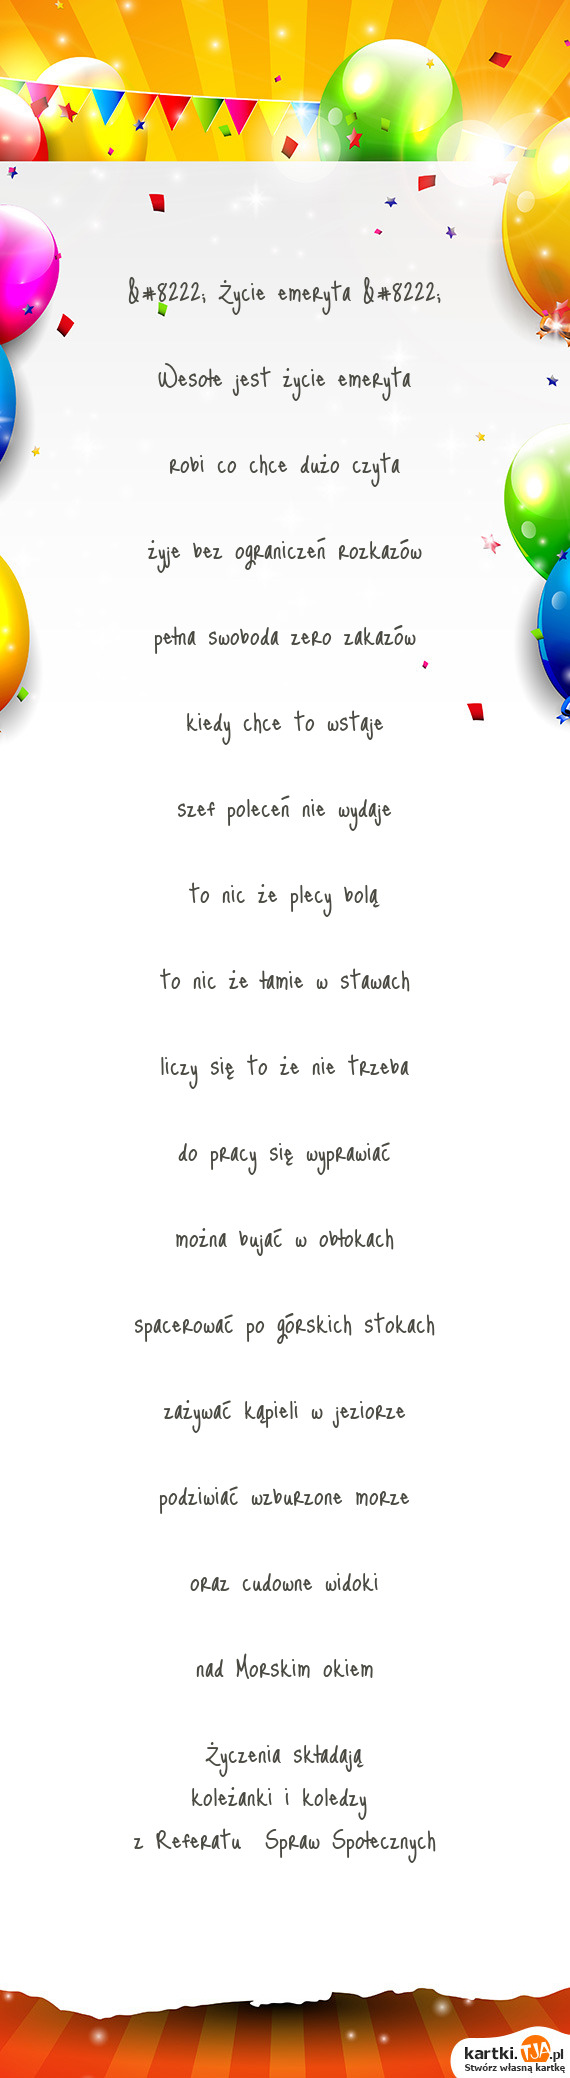 &#8222; Życie emeryta &#8222;
Wesołe jest życie emeryta
robi co chce dużo czyta
żyje bez ograniczeń rozkazów
pełna swoboda zero zakazów
kiedy chce to wstaje
szef poleceń nie wydaje
to nic że plecy bolą
to nic że łamie w stawach
liczy się to że nie trzeba
do pracy się wyprawiać
można bujać w obłokach
spacerować po górskich stokach
zażywać kąpieli w jeziorze
podziwiać wzburzone morze
oraz cudowne widoki
nad Morskim okiem
Życzenia składają
koleżanki i koledzy
z Referatu Spraw Społecznych
kartki.TJA.pl
Stwórz własną kartkę